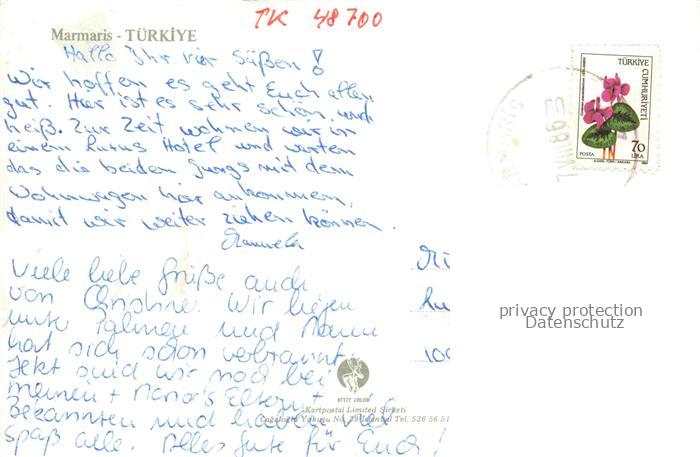 TK 48700
Marmaris - TÜRKİYE
Hallo Ihr vier Süßen!
Wir hoffen es geht Euch allen
gut. Hier ist es sehr schön und
heiß. Zur Zeit wohnen wir in
einem Luxus Hotel und warten
das die beiden Jungs mit dem
Wohnwagen hier ankommen,
damit wir weiter ziehen können.
Manuela
Viele liebe Grüße auch
von Christine. Wir liegen
unter Palmen und Manu
hat sich schon verbrannt.
Jetzt sind wir noch bei
meinen + Manu's Eltern +
Bekannten und haben viel
Spaß alle. Alles Gute für Euch!
TÜRKİYE
CUMHURİYETİ
70
LİRA
POSTA
100
KEYİF COLOR
Kartpostal Limited Şirketi
Cağaloğlu Yokuşu No. 39 İstanbul Tel. 526 56 51
privacy protection
Datenschutz